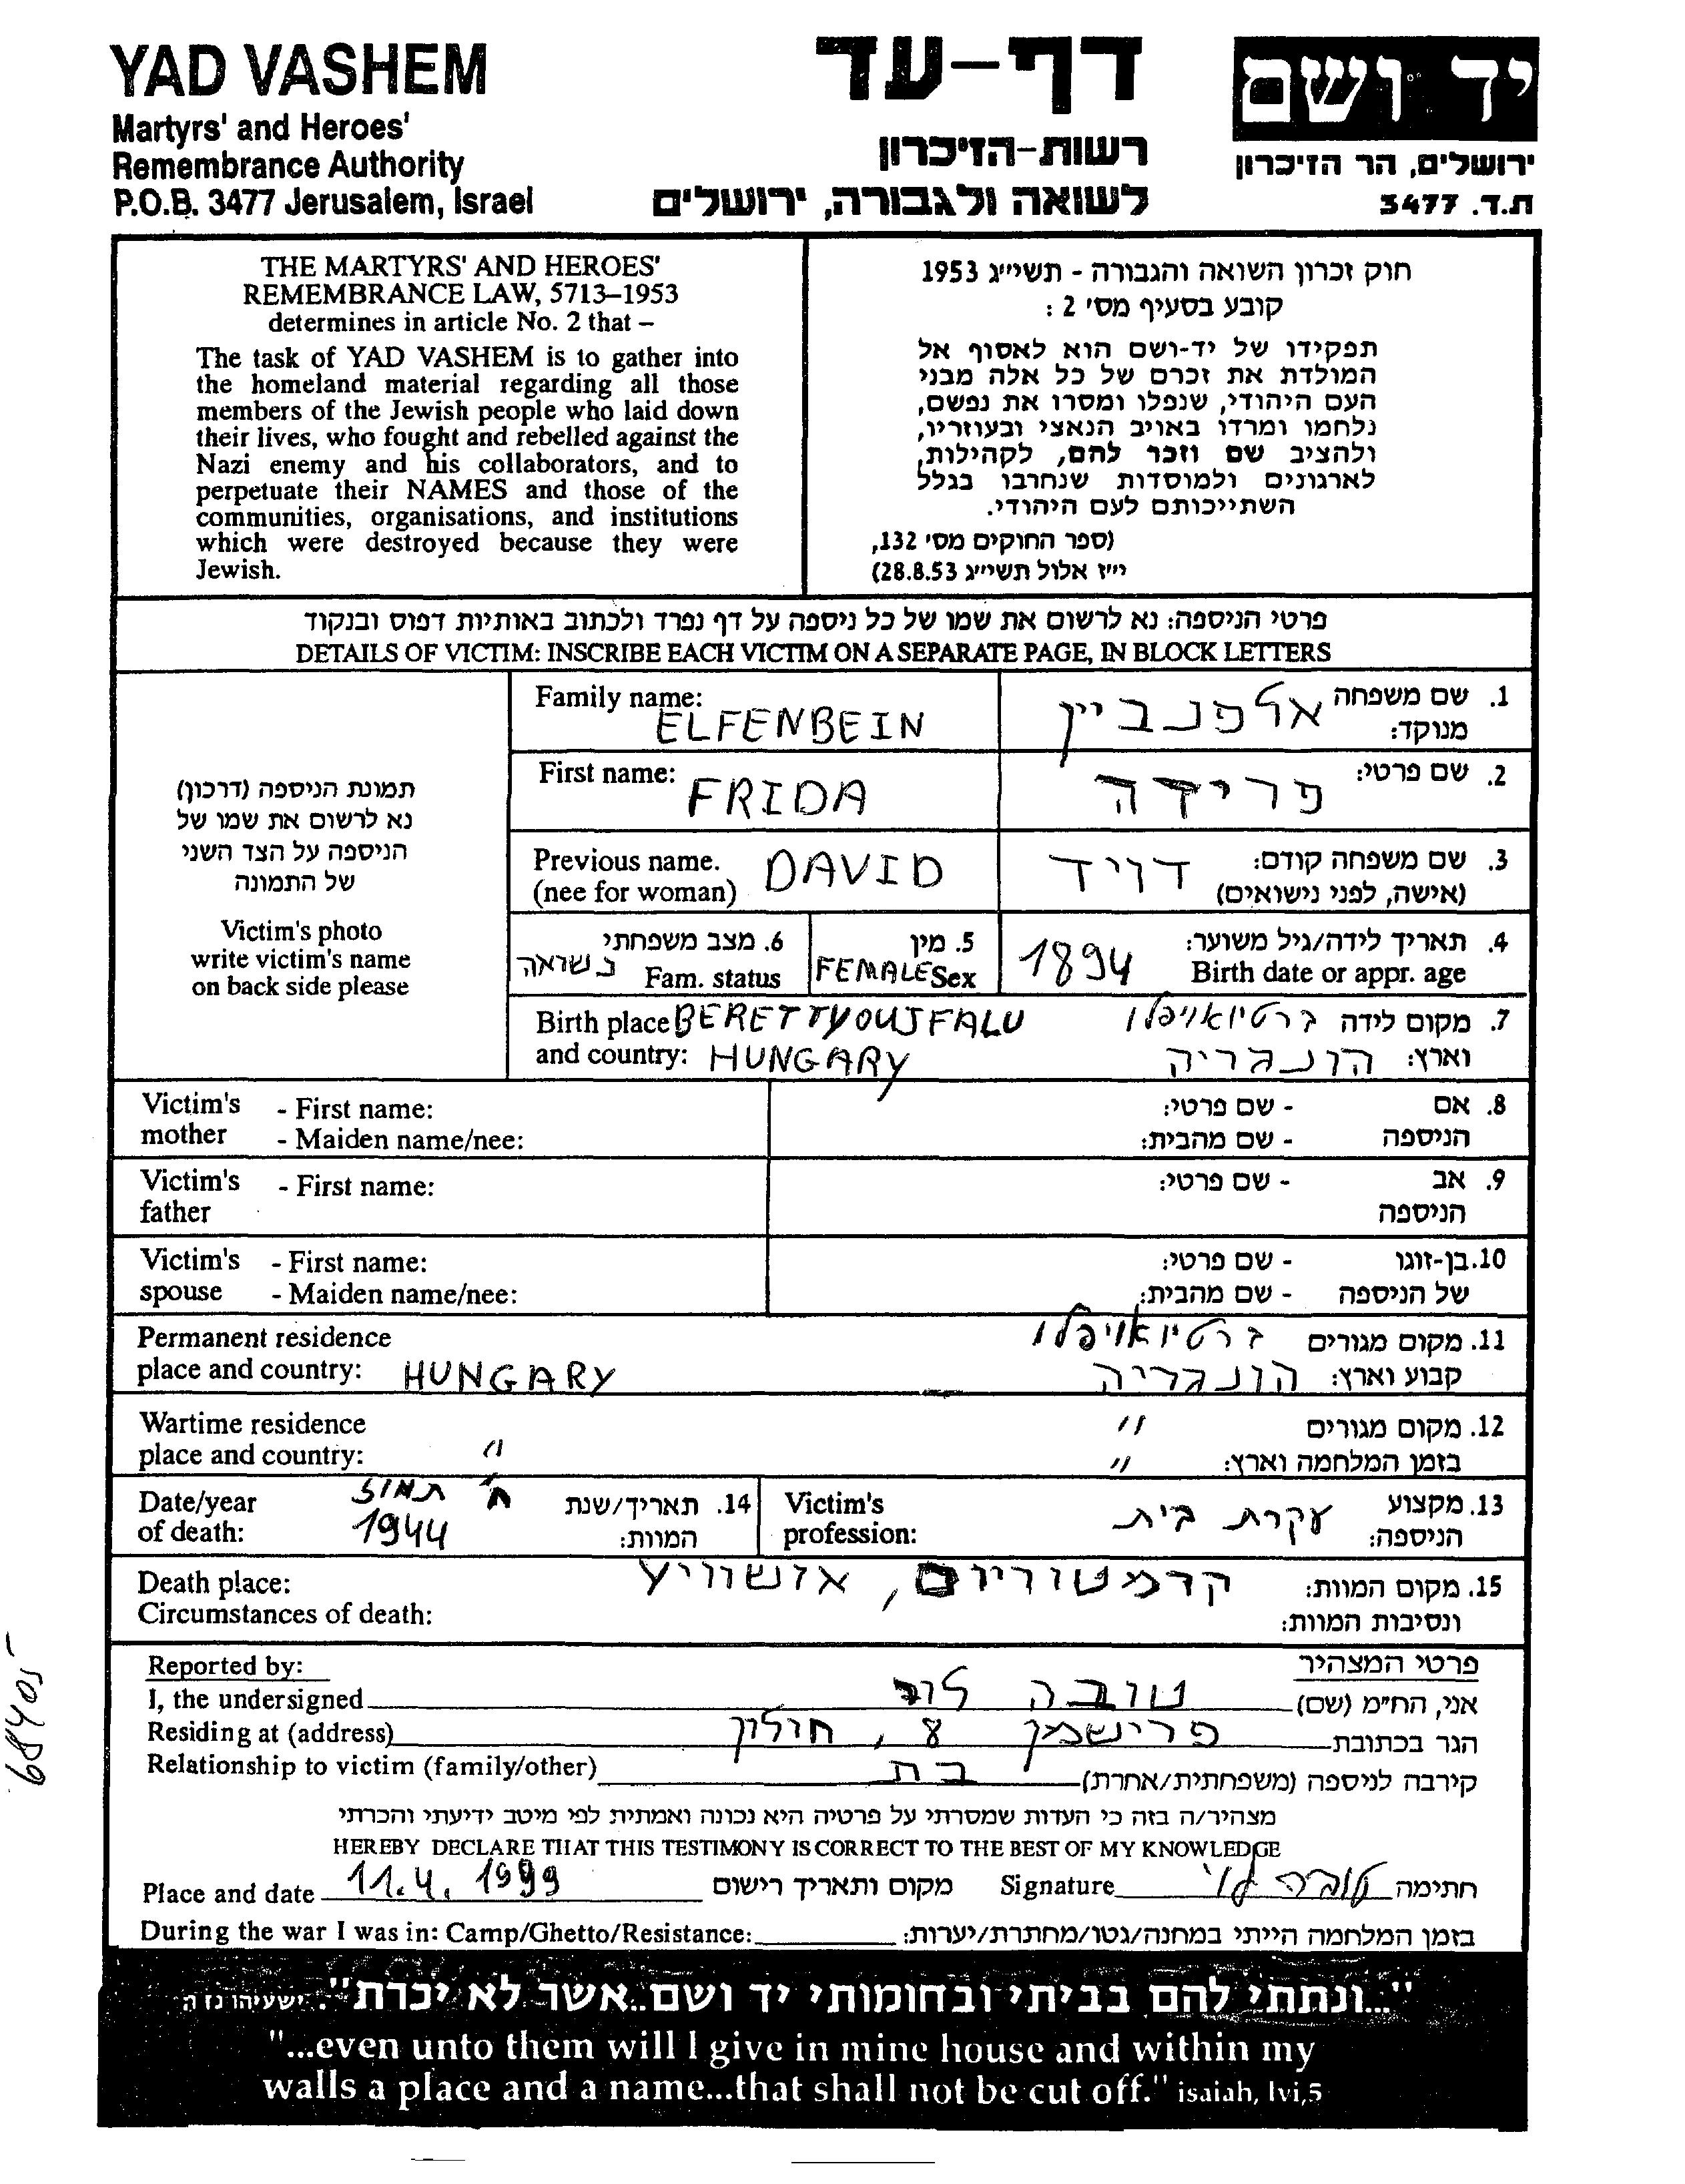 YAD VASHEM
Martyrs' and Heroes'
Remembrance Authority
P.O.B. 3477 Jerusalem, Israel
דף-עד
רשות-הזיכרון
לשואה ולגבורה, ירושלים
יד ושם
ירושלים, הר הזיכרון
ת.ד. 3477
THE MARTYRS' AND HEROES'
REMEMBRANCE LAW, 5713–1953
determines in article No. 2 that –
The task of YAD VASHEM is to gather into
the homeland material regarding all those
members of the Jewish people who laid down
their lives, who fought and rebelled against the
Nazi enemy and his collaborators, and to
perpetuate their NAMES and those of the
communities, organisations, and institutions
which were destroyed because they were
Jewish.
חוק זכרון השואה והגבורה - תשי״ג 1953
קובע בסעיף מס' 2 :
תפקידו של יד-ושם הוא לאסוף אל
המולדת את זכרם של כל אלה מבני
העם היהודי, שנפלו ומסרו את נפשם,
נלחמו ומרדו באויב הנאצי ובעוזריו,
ולהציב שם וזכר להם, לקהילות,
לארגונים ולמוסדות שנחרבו בגלל
השתייכותם לעם היהודי.
(ספר החוקים מס' 132,
י״ז אלול תשי״ג 28.8.53)
פרטי הניספה: נא לרשום את שמו של כל ניספה על דף נפרד ולכתוב באותיות דפוס ובנקוד
DETAILS OF VICTIM: INSCRIBE EACH VICTIM ON A SEPARATE PAGE, IN BLOCK LETTERS
תמונת הניספה (דרכון)
נא לרשום את שמו של
הניספה על הצד השני
של התמונה
Victim's photo
write victim's name
on back side please
Family name: ELFENBEIN
1. שם משפחה מנוקד: אלפנביין
First name: FRIDA
2. שם פרטי: פרידה
Previous name. (nee for woman) DAVID
3. שם משפחה קודם: (אישה, לפני נישואים) דויד
6. מצב משפחתי Fam. status נשואה
5. מין Sex FEMALE
4. תאריך לידה/גיל משוער: Birth date or appr. age 1894
Birth place BERETTYOUJFALU
and country: HUNGARY
7. מקום לידה ברטיואויפלו
וארץ: הונגריה
Victim's mother - First name:
- Maiden name/nee:
8. אם הניספה - שם פרטי:
- שם מהבית:
Victim's father - First name:
9. אב הניספה - שם פרטי:
Victim's spouse - First name:
- Maiden name/nee:
10. בן-זוגו של הניספה - שם פרטי:
- שם מהבית:
Permanent residence
place and country: HUNGARY
11. מקום מגורים ברטיואויפלו
קבוע וארץ: הונגריה
Wartime residence
place and country: "
12. מקום מגורים "
בזמן המלחמה וארץ: "
Date/year of death: ח' תמוז
1944
14. תאריך/שנת המוות:
Victim's profession:
13. מקצוע הניספה: עקרת בית
Death place:
Circumstances of death:
15. מקום המוות: קרמטוריום, אושוויץ
ונסיבות המוות:
Reported by:
פרטי המצהיר
I, the undersigned טובה לוי אני, החי״מ (שם)
Residing at (address) פרישמן 8, חולון הגר בכתובת
Relationship to victim (family/other) בת קירבה לניספה (משפחתית/אחרת)
מצהיר/ה בזה כי העדות שמסרתי על פרטיה היא נכונה ואמתית לפי מיטב ידיעתי והכרתי
HEREBY DECLARE THAT THIS TESTIMONY IS CORRECT TO THE BEST OF MY KNOWLEDGE
Place and date 11.4.1999 מקום ותאריך רישום Signature טובה לוי חתימה
During the war I was in: Camp/Ghetto/Resistance: בזמן המלחמה הייתי במחנה/גטו/מחתרת/יערות:
"...ונתתי להם בביתי ובחומותי יד ושם..אשר לא יכרת". ישעיהו נו ה
"...even unto them will I give in mine house and within my
walls a place and a name...that shall not be cut off." isaiah, lvi,5